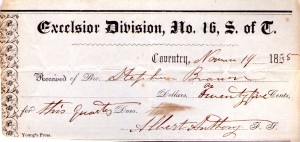 Excelsior Division, No. 16, S. of T.
Coventry, Novem 19 1855
Received of Bro. Stephen Brown
Dollars, Twenty five Cents,
for this Quarter Dues.
Albert Anthony F. S.
Young's Press.